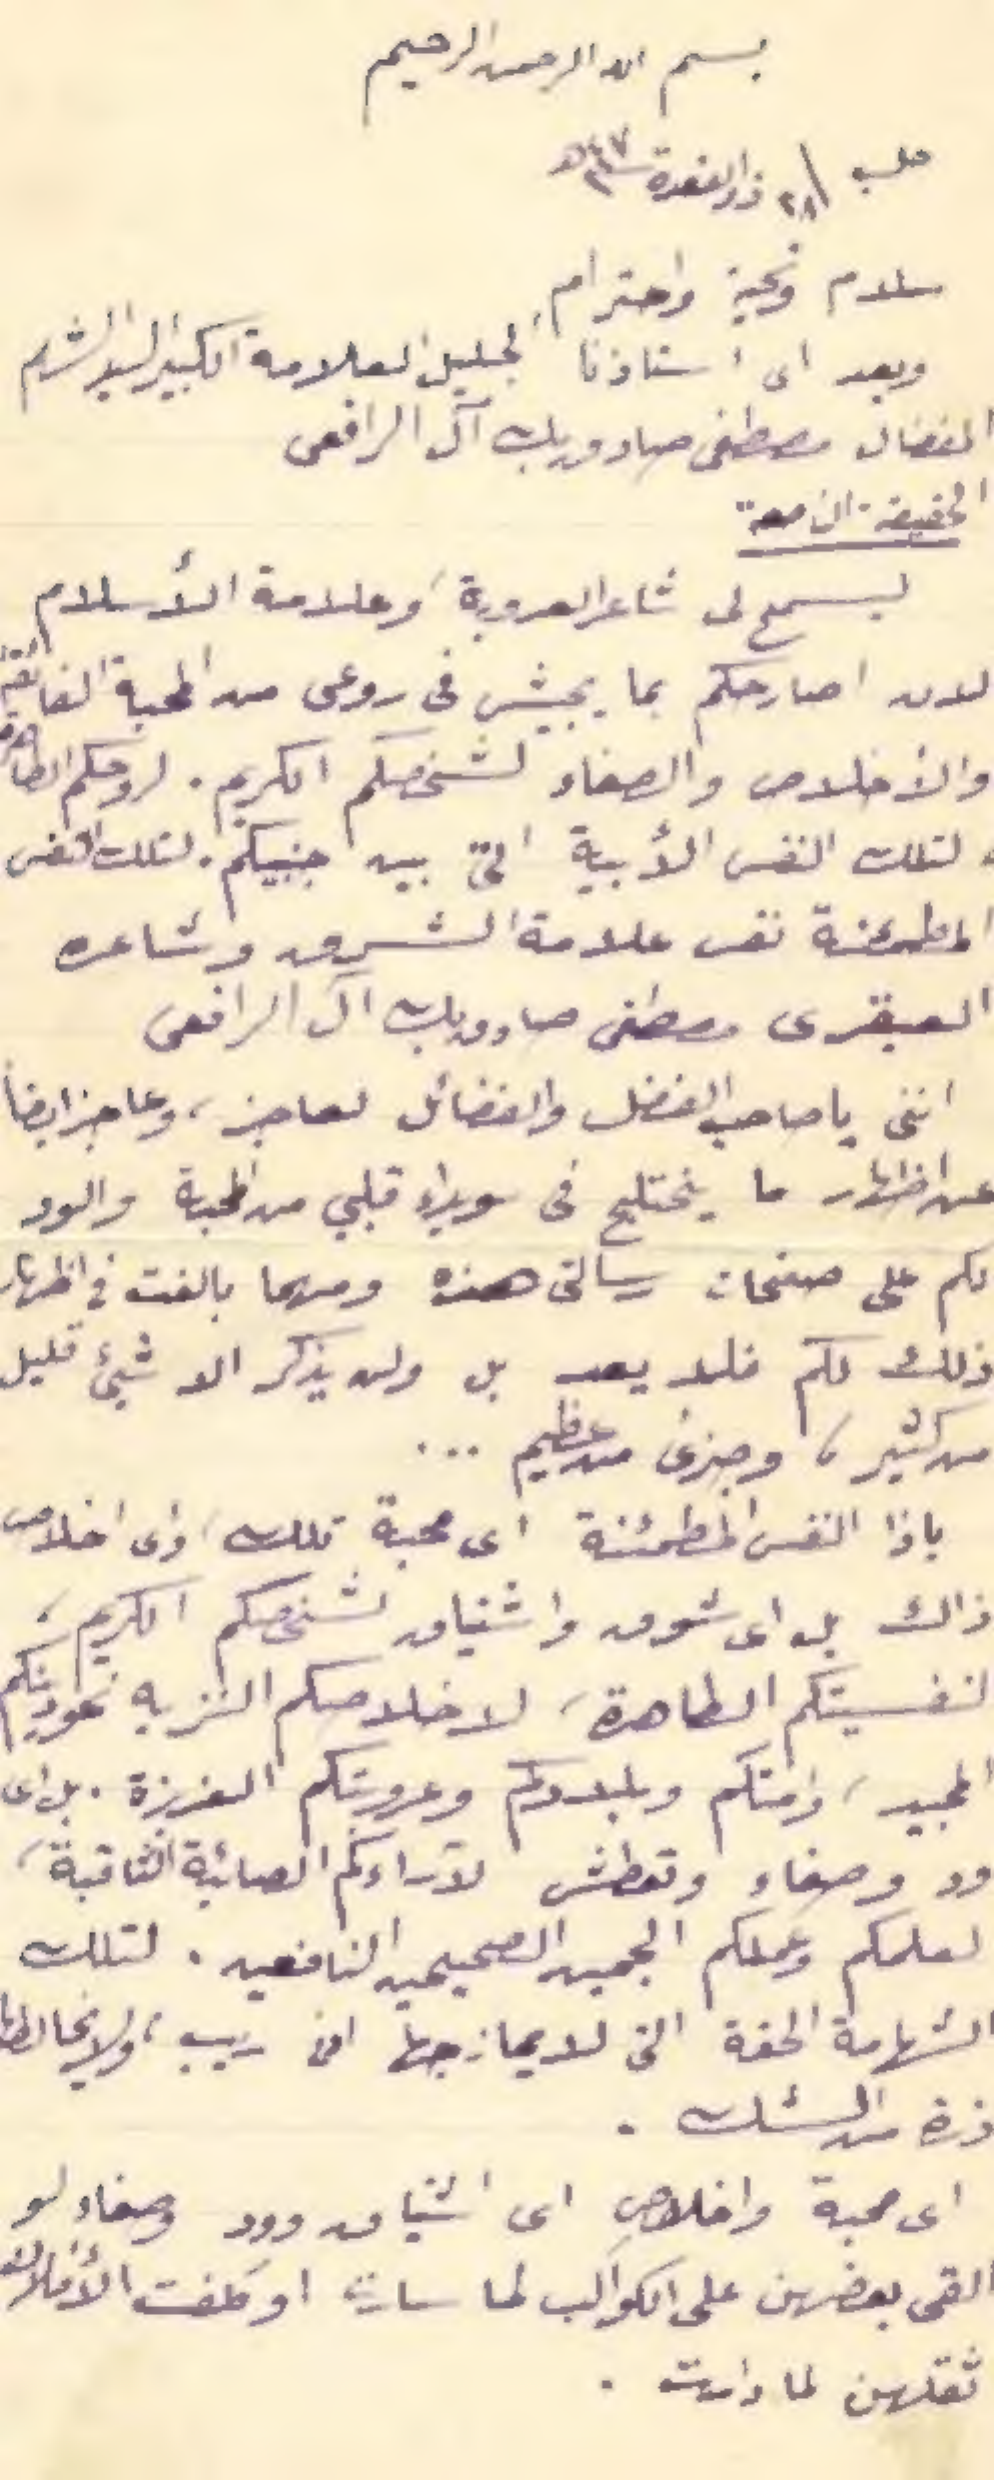 بسم الله الرحمن الرحيم
حلب ٢٨ ذو القعدة سنة ٣٤٧هـ
سلام وتحية واحترام
وبعد اى استاذنا الجليل العلامة الكبير السيد الشهم
المفضال مصطفى صادق بك آل الرافعى
الحقيقة الناصعة
ليسمح لى شاعر العروبة، وعلامة الأسلام
لان اصارحكم بما يجيش فى روعى من المحبة الفائقة
والأخلاص والصفاء لشخصكم الكريم. لروحكم الطاهرة
لتلك النفس الأبية التى بين جنبيكم. لتلك النفس
المطمئنة نفس علامة الشرق وشاعره
العبقرى مصطفى صادق بك آل الرافعى
اننى يا صاحب الفضل والفضائل لعاجز، وعاجز ايضاً
عن اظهار ما يختلج فى سويداء قلبي من المحبة والود
لكم على صفحات رسالتى هذه ومهما بالغت في اظهار
ذلك لكم فلا يعد بل ولن يذكر الا شيئ قليل
من كثير، وجزئ من عظيم ...
ياذا النفس المطمئنة اى محبة تلك، واى اخلاص
ذاك بل اى شوق واشتياق لشخصكم الكريم،
لنفسيتكم الطاهرة، لاخلاصكم النزيه نحو دينكم
المجيد، وامتكم وبلادكم وعروبتكم العزيزة. بل اى
ود وصفاء وتعطش لآراءكم الصائبة الثاقبة،
لعلمكم وعملكم الجمين الصحيحين النافعين. لتلك
الشهامة الحقة التى لا يمازجها اى ريب، ولا يخالطها
ذرة من الشك.
اى محبة واخلاص اى اشتياق وود وصفاء لو
القى بعضهن على الكواكب لما سارت او كلفت الأفلاك
ثقلهن لما دارت.